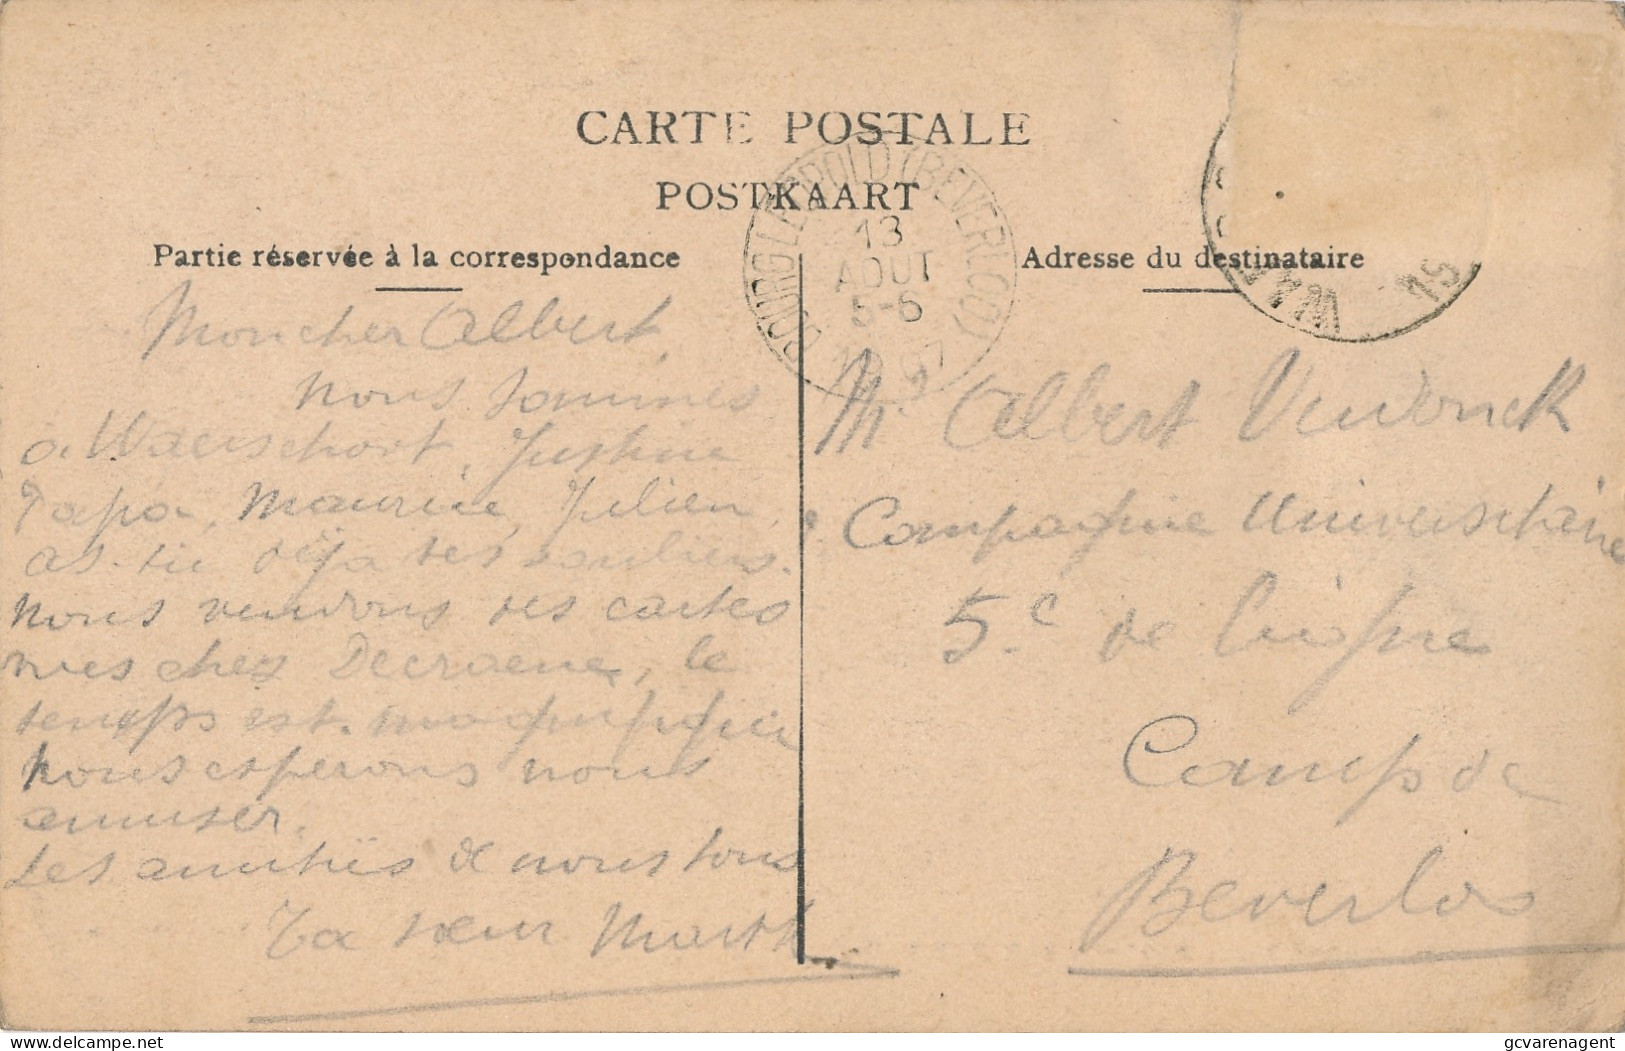 CARTE POSTALE
POSTKAART
Partie réservée à la correspondance
Adresse du destinataire
BOURG-LEOPOLD (BEVERLOO)
13
AOUT
5-6
Mon cher Albert,
nous sommes
a Waerschoot, Justine
Papa, Maurice, Julien,
as-tu déja tes souliers.
nous vendons des cartes
vues chez Decraene, le
temps est
nous esperons nous
amuser.
Les amitiés de nous tous
Ta sœur Marth
Mr Albert
Compagnie Universitaire
5.e de Ligne
Camp de
Beverloo
WAA
hip
gcvarenagent